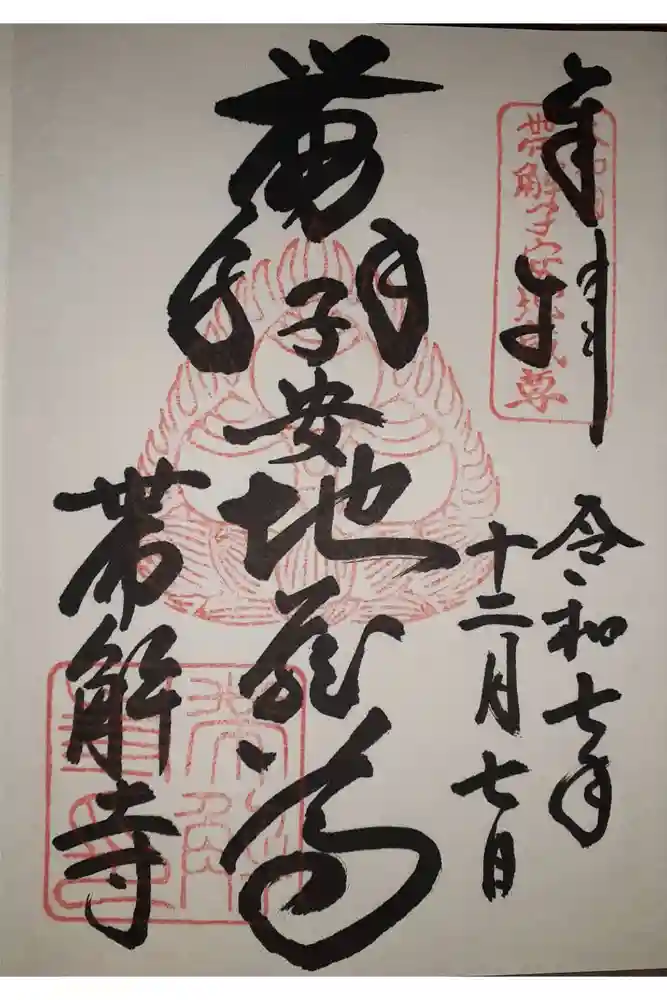 奉拝
帶解子安地蔵尊
令和七年
十二月七日
帶解子安地蔵尊
帶解寺